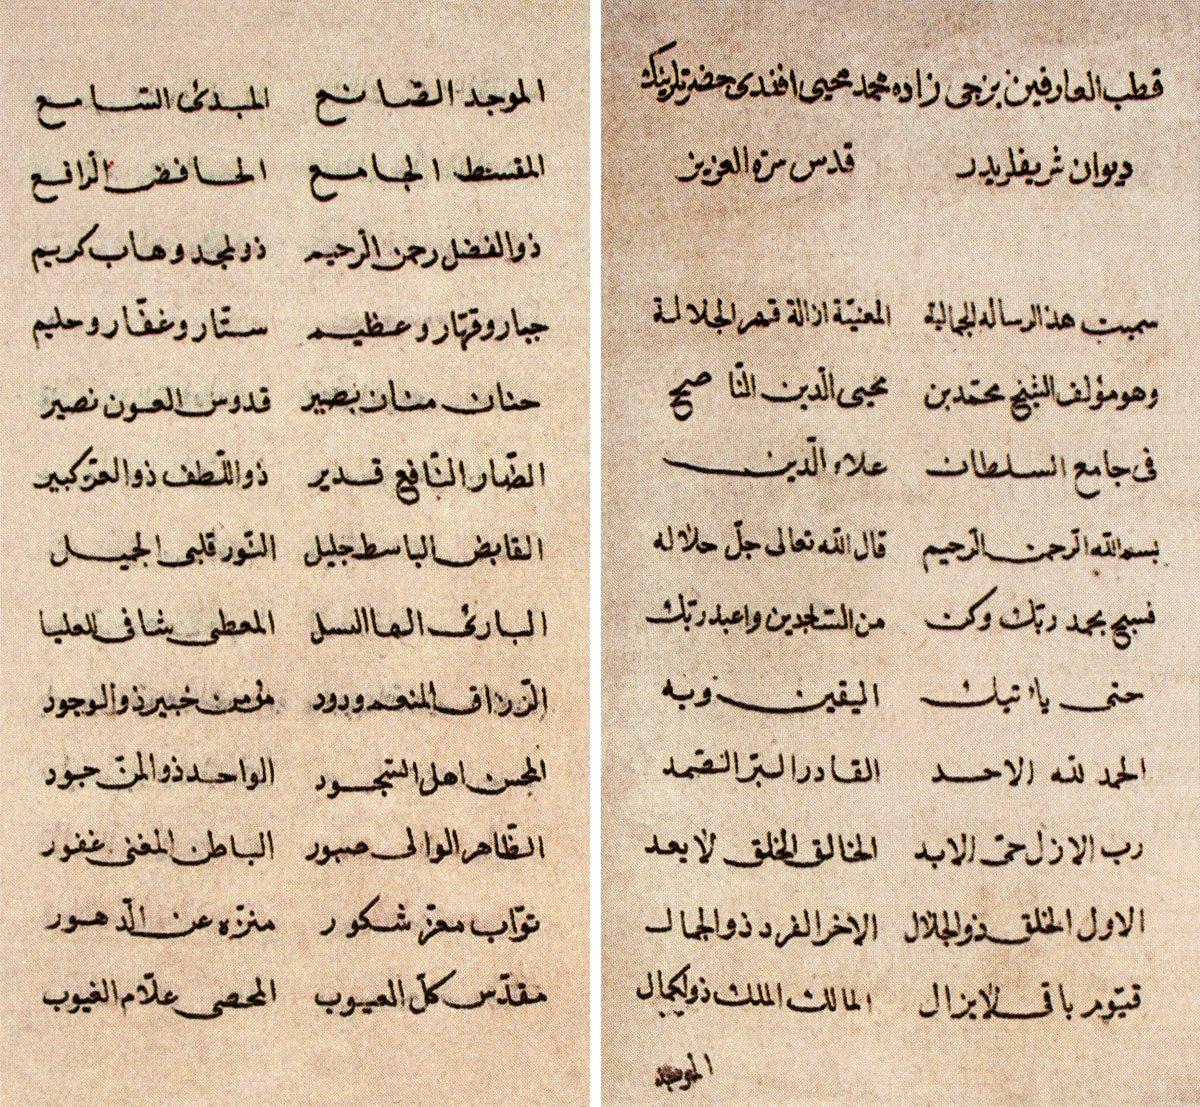 قطب العارفين بزجى زاده محمد محيى افندى حضرتلرينك
ديوان شريفلريدر قدس سره العزيز
سميت هذا الرساله الجمالية المعنيّة ازالة قهر الجلالة
وهو مؤلف الشيخ محمّد بن محيى الدّين النّاصح
فى جامع السلطان علاء الّدين
بسم الله الرّحمن الرّحيم قال الله تعالى جلّ جلاله
فسبح بحمد ربّك وكن من السّاجدين واعبد ربّك
حتى يأتيك اليقين وبه
الحمد لله الاحد القادر البرّ الصّمد
رب الازل حىّ الابد الخالق الخلق لا يعد
الاول الخلق ذو الجلال الاخر الفرد ذو الجمال
قيّوم باقى لا يزال المالك الملك ذو الكمال
الموجد
الموجد الصّانع المبدئ السّامع
المقسط الجامع الخافض الرّافع
ذو الفضل رحمن الرّحيم ذولمجد وهاب كريم
جبار وقهّار وعظيم ستّار وغفّار وحليم
حنان منان بصير قدوس العون نصير
الضّار النّافع قدير ذو اللّطف ذو العزّ كبير
القابض الباسط جليل النّور قلبى الجميل
البارئ المعطى شافى العليا
الرّزاق المنعم ودود مؤمن خبير ذو الوجود
المحسن اهل السّجود الواحد ذو المنّ جود
الظّاهر الوالى صبور الباطن المغنى غفور
توّاب معزّ شكور منزّه عن الدّهور
مقدّس كلّ العيوب المحصى علّام الغيوب